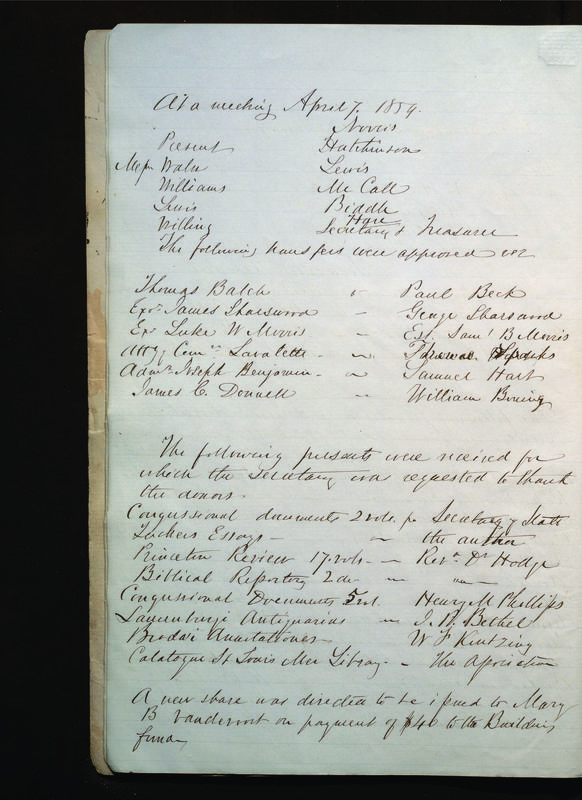 At a meeting April 7. 1859.
Norris
Present Hutchinson
Messrs Waln Lewis
Williams McCall
Lewis Biddle
Willing Hare
Secretary & Treasurer
The following transfers were approved viz
Thomas Balch to Paul Beck
Exr. James Sharswood " George Sharswood
Exr Luke W Morris " Est. Saml B Morris
Atty Comre Lavalette "
Admr. Joseph Benjamin " Samuel Hart
James C. Donnell " William
The following presents were received for
which the Secretary was requested to thank
the donors.
Congressional documents 2 vols. fr Secretary of State
Tuckers Essays " the author
Princeton Review 17 vols. " Revd. Dr Hodge
Biblical Repertory 2 do " "
Congressional Documents 5 vol. Henry M Phillips
Antiquarias " J. R. Bethel
Annotationes W F Kintzing
Catalogue St Louis Mer Library. " The Association
A new share was directed to be issued to Mary
B Vandervoort on payment of $40 to the Building
fund